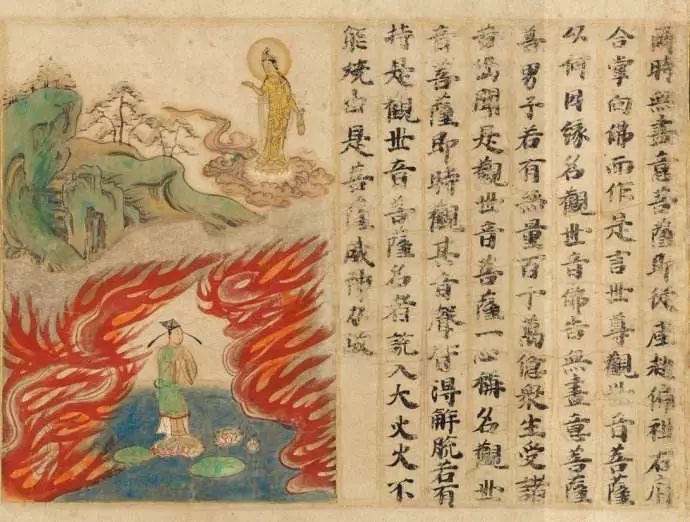 爾時無盡意菩薩即從座起偏袒右肩
合掌向佛而作是言世尊觀世音菩薩
以何因緣名觀世音佛告無盡意菩薩
善男子若有無量百千萬億衆生受諸
苦惱聞是觀世音菩薩一心稱名觀世
音菩薩即時觀其音聲皆得解脫若有
持是觀世音菩薩名者設入大火火不
能燒由是菩薩威神力故